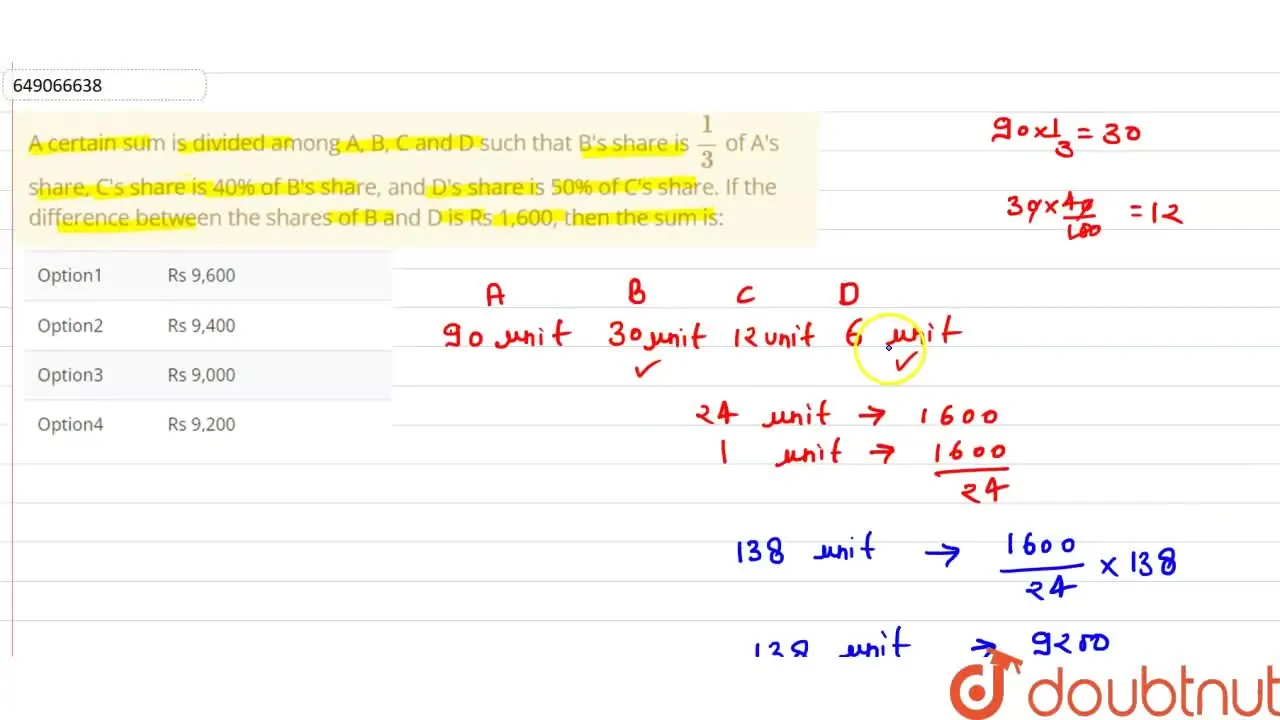 649066638
A certain sum is divided among A, B, C and D such that B's share is 1/3 of A's
share, C's share is 40% of B's share, and D's share is 50% of C's share. If the
difference between the shares of B and D is Rs 1,600, then the sum is:
Option1 Rs 9,600
Option2 Rs 9,400
Option3 Rs 9,000
Option4 Rs 9,200
90 × 1/3 = 30
30 × 40/100 = 12
A B C D
90 unit 30 unit 12 unit 6 unit
24 unit → 1600
1 unit → 1600/24
138 unit → 1600/24 × 138
138 unit → 9200
doubtnut